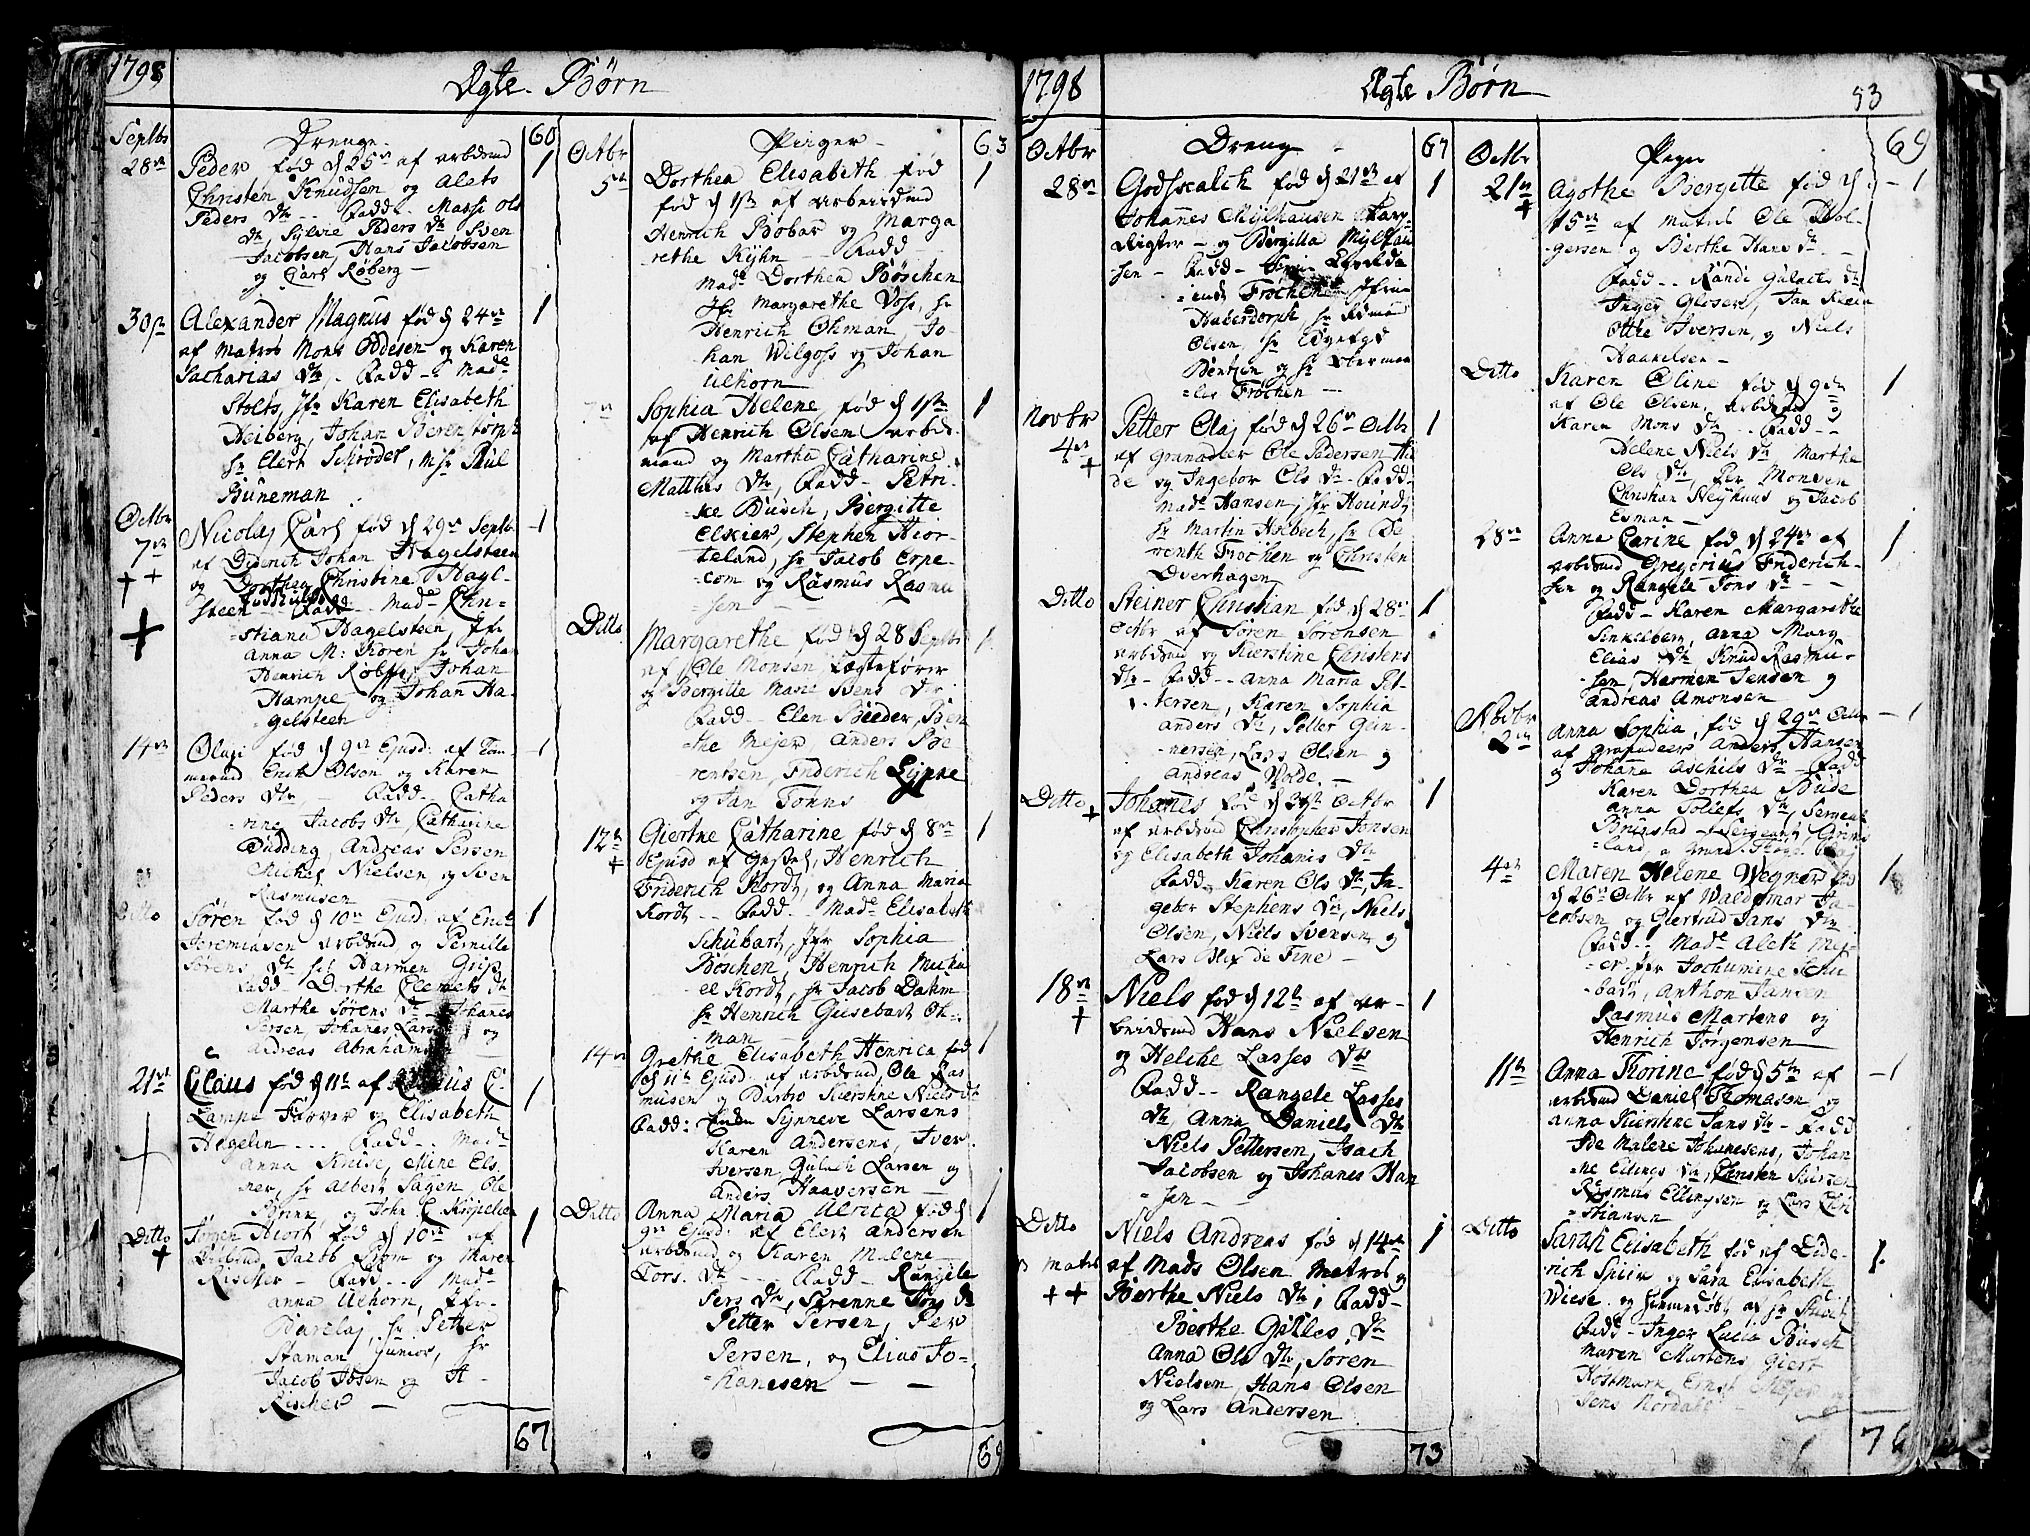 1798
Ægte Børn
Septbr
Drenge
60
28de
Peder fød d 25de af arbdsmd
1
Christen Knudsen og Alets
Peders dtr Fadd. Massi Ols
dtr, Sylvie Peders dtr Sven
Jacobsen, Hans Jacobsen
og Carl Røberg
30te
Alexander Magnus fød d 24de
1
af Matros Mons Odesen og Karen
Sacharias dtr. Fadd Made
Stolts, Jfr Karen Elisabeth
Heiberg, Johan Berenstorph
hr Elert Schrøder, mhr Paul
Büneman
Octbr
7de
Nicolaj Carl fød d 29de Septbr
1
af Diderich Johan Hagelsteen
og Dorthea Christine Hagl-
steen Fadd Made Chri=
=stiana Hagelsteen, Jfr
Anna M: Koren hr Johan
Henrich Rolffs, Johan
Hampe og Johan Ha-
=gelsteen
14de
Olugi fød d 9de Ejusd: af Tøm
1
mermd Erich Olsen og Karen
Peders dtr, Fadd Catha
=rine Jacobs dtr, Catharine
Budding, Andreas Persen
Michel Nielsen og Sven
Rasmusen
Ditto
Søren fød d 10de Ejusd. af Erich
1
Jeremiasen arbdsmd og Pernille
Sørens dtr hr Harmen Grip
Fadd Dorthe Clemets dtr
Marthe Sørens dtr Johanes
Persen Johanes Larsen og
Andreas Abrahamsen
21de
Claus fød d 11te af
1
Lampe Farver og Elisabeth
Hegelin Fadd Made
Anna Kruse, Mine Els
ner, hr Albert Sagen, Ole
Brink og John C Knipelien
Ditto
Jørgen Hiort fød d 10de af
1
arbdsmd Jacob Brøm og Maren
Rischer Fadd Made
Anna Ulhorn, Jfr
Barclaj, hr Petter
Staman Junior, hr
Jacob Ibsen og H
Rischer
67
Piiger
63
Octbr
5te
Dorthea Elisabeth fød
1
fød d 1ste af arbeidsmd
Henrich Bøbar og Marga
rethe Kyhn Fadd
Made Dorthea Bøschen
Jfr Margarethe Voss, hr
Henrich Ohman, Jo-
han Wilgoss og Johan
Ulhorn
7de
Sophia Helene, fød d 1ste
1
af Henrich Olsen arbds-
mand og Martha Catharine
Matthis dtr, Fadd Petri-
=ke Busch, Bergitte
Elskier, Stephen Hior-
teland, hr Jacob Erpe-
=com og Rasmus Rasmu
=sen
Ditto
Margarethe fød d 28 Septbr
1
af Ole Monsen Løgtefører
og Bergitte Marie Svens dtr
Fadd Elen Bieder, Ben
=the Mejer, Anders Be
rentsen, Friderich Lynne
og Jan Tønns
12te
Giertne Catharine fød d 8de
1
Ejusd af Henrich
Friderich Kordt, og Anna Maria
Kordt Fadd Made Elisabeth
Schubart, Jfr Sophia
Bøschen, Henrich Micha
el Kordt, hr Jacob Dahm
hr Henrich Gusebart Oh-
man
14de
Grethe Elisabeth Henrica fød
1
d 11te Ejusd. af arbdsmd Ole Ras
musen og Barbro Kierstine Niels dtr
Fadd: Synneve Larsens
Karen Andersens, Iver
Iversen, Gulach Larsen og
Anders Haaversen
Ditto
Anna Maria Ulrica fød d
1
9de Ejusd: af Elert Andersen
arbdsmd og Karen Malene
Tors. dtr Fadd Rangele
Pers dtr, Sirenne Pers dtr
Petter Persen, Per
Persen, og Elias Jo-
=hanesen
69
1798
Ægte Børn
53
Octbr
Dreng
67
28de
Godschalch fød d 21de af
1
Johannes Mylhausen
og Bergitta Mylhau
sen Fadd
=iends Frøchen Jfrue
Haberdorph, hr Asmus
Olsen, hr
Bentzen og hr Herman
=les Frøchen
Novbr
4de
Petter Olaj fød d 26de Octbr
1
af Granadeer Ole Pedersen Hei
de og Ingebor Ols dtr Fadd
Made Hansen, Jfr Hound,
hr Martin Holbech, hr Be
renth Frøchen og Christen
Overhagen
Ditto
Steiner Christian fød d 28de
1
Octbr af Søren Sørensen
arbdsmd og Kierstine Christens
dtr Fadd Anna Maria Pet-
tersen, Karen Sophia
Anders dtr, Petter Gun-
=nersen, Lars Olsen og
Andreas Volde
Ditto
Johanes fød d 31te Octbr
1
af arbdsmd Christopher Jonsen
og Elisabeth Johanis dtr
Fadd Karen Ols dtr, In-
gebor Stephens dtr, Niels
Olsen, Niels Svensen og
Lars Alex de Fine
18de
Niels fød d 12te af ar-
1
beidsmd Hans Nielsen
og Helche Lasses dtr
Fadd Rangele Lasses
dtr, Anna Daniels dtr
Niels Pettersen, Isach
Jacobsen og Johanes Han
=sen
Ditto
Niels Andreas fød d 14de
1
af Mads Olsen Matros og
Berthe Niels dtr, Fadd
Berthe Gulles dtr
Anna Ols dtr, Søren
Nielsen, Hans Olsen
og Lars Andersen
73
Octbr
Piger
69
21de
Agothe Bergitte fød d
1
15de af Matros Ole Hol-
gersen og Berthe Hans dtr
Fadd Randi Gulachs dtr
Inger Glosers, Jan Knein
Otthe Iversen, og Niels
Haakelsen
Ditto
Karen Oline fød d 9de
1
af Ole Olsen, arbdsmd og
Karen Mons dtr Fadd
Helene Niels dtr, Marthe
Ols dtr, Per Monsen
Christian Neyhuus og Jacob
Esman
28de
Anna Carine fød d 24de af
1
arbdsmd Gregorius Friderich-
sen og Rangele Tons dtr
Fadd Karen Margarethe
Sinkelberg, Anna Marg
Elias dtr, Knud Rasmu-
sen, Harmen Jensen og
Andreas Amonsen
Novbr
2de
Anna Sophia, fød d 29de Octbr
1
af Granadeer Anders Hansen
og Johana Aschils dtr Fadd
Karen Dorthea Bude
Anna Tollefs dtr, Sergeant
Bringstad Sergeant Grims
land, og
4de
Maren Helene Wegner fød
1
d 26de Octbr af Waldemar Ja-
cobsen, og Giertrud Jans dtr
Fadd Made Aleth Mej-
er. Jfr Jochumine Schu
bart, Anthon Jansen
Rasmus Martens og
Henrich Jørgensen
11te
Anna Florine fød d 5te af
1
arbdsmd Daniel Thomasen og
Anna Kierstine Jans dtr Fadd
Ide Malene Johanesens, Johan
=ne Ellings dtr, Christen Sjursen
Rasmus Ellingsen og Lars Chri
=stiansen
Ditto
Sarah Elisabeth fød af Dide-
1
rich Spiir og Sara Elisabeth
Wiese og hiemmedøbt af hr
Fadd Inger Lucia Busch
Maren Martens Giert
Kostmark, Ernst Mejer og
Jens Nordahl
76